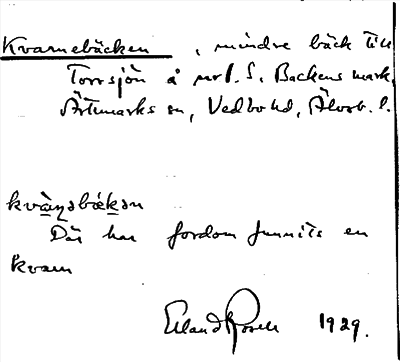 Kvarnebäcken, mindre bäck till
Torrsjön å S. Backens mark,
Ärtemarks sn, Vedbo hd, Älvsb. l.
kvàɳəbǽkən
Där har fordom funnits en
kvarn
Erland Rosell 1929.